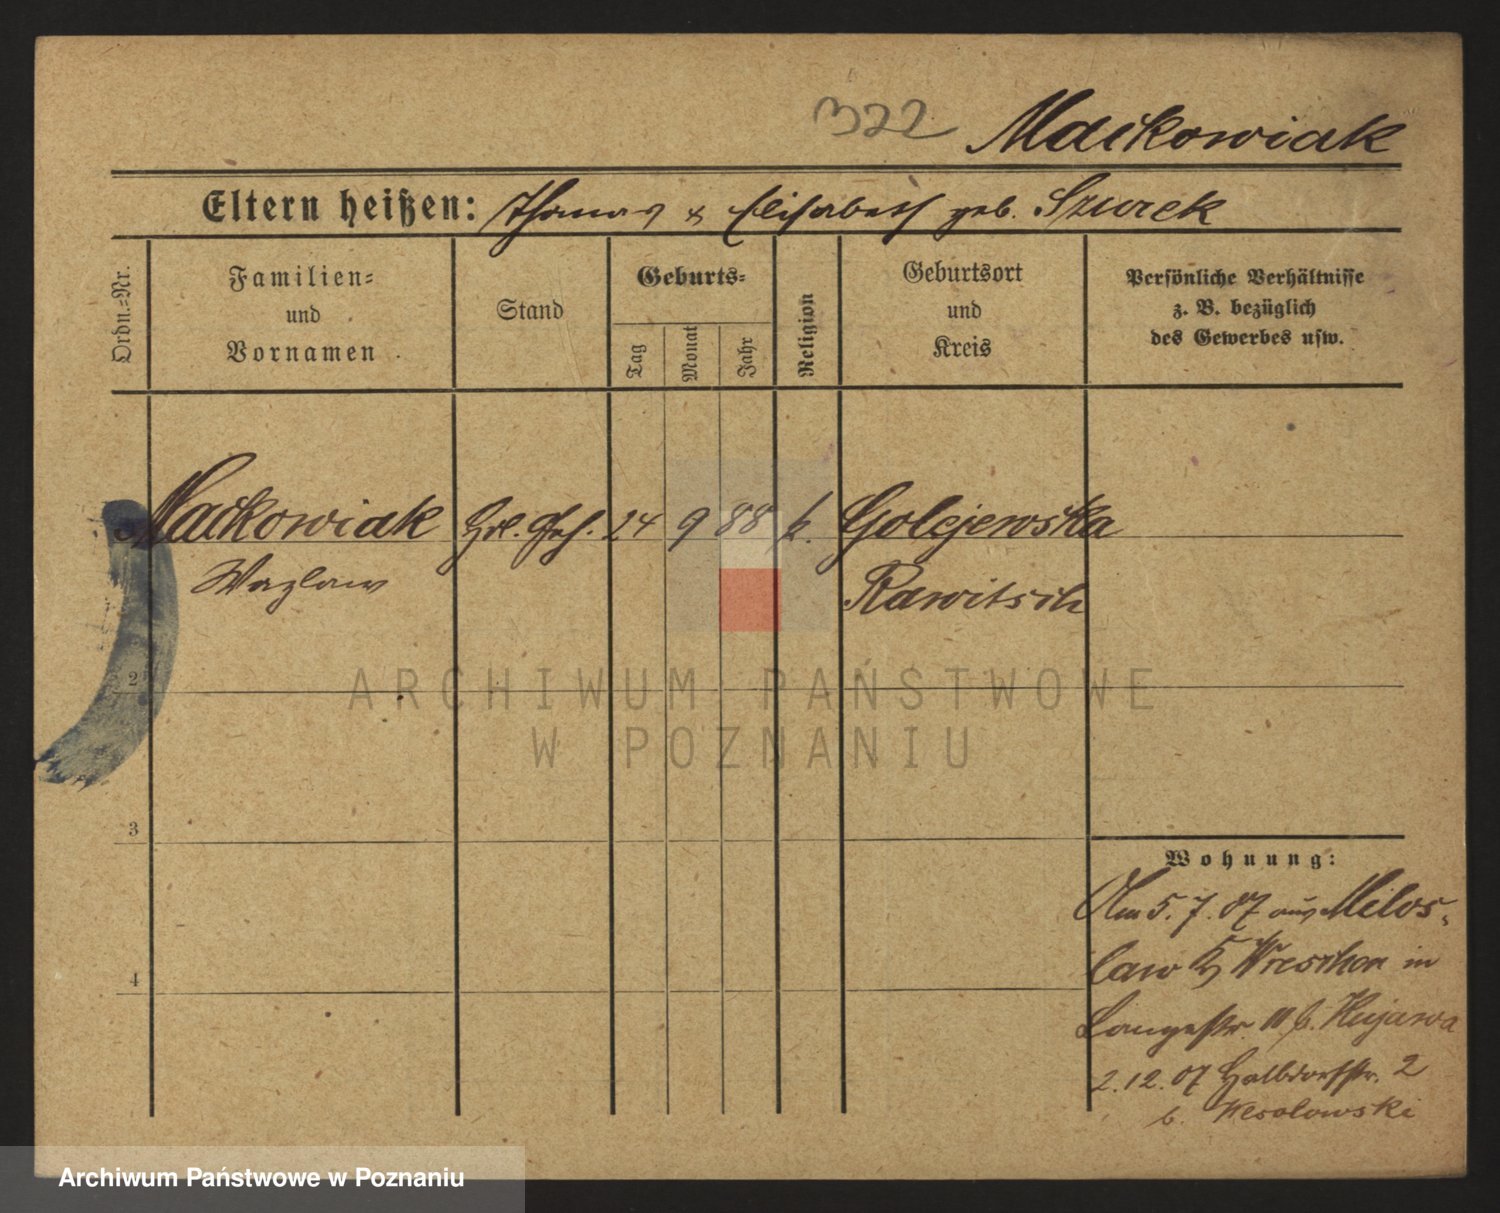 322 Maćkowiak
Eltern heißen: Thomas & Elisabeth geb. Szurek
Ordn.-Nr.
Familien-
und
Vornamen
Stand
Geburts-
Tag
Monat
Jahr
Religion
Geburtsort
und
Kreis
Persönliche Verhältnisse
z. B. bezüglich
des Gewerbes usw.
Maćkowiak
24 9 88 k. Golejewska
Wazlaw
Rawitsch
2
3
4
Wohnung:
Am 5. 7. 07 aus Milos-
law Kr Wreschen in
Langestr. 11 b. Kujawa
2.12.07 Halbdorfstr. 2
b. Wesolowski
ARCHIWUM PAŃSTWOWE
W POZNANIU
Archiwum Państwowe w Poznaniu